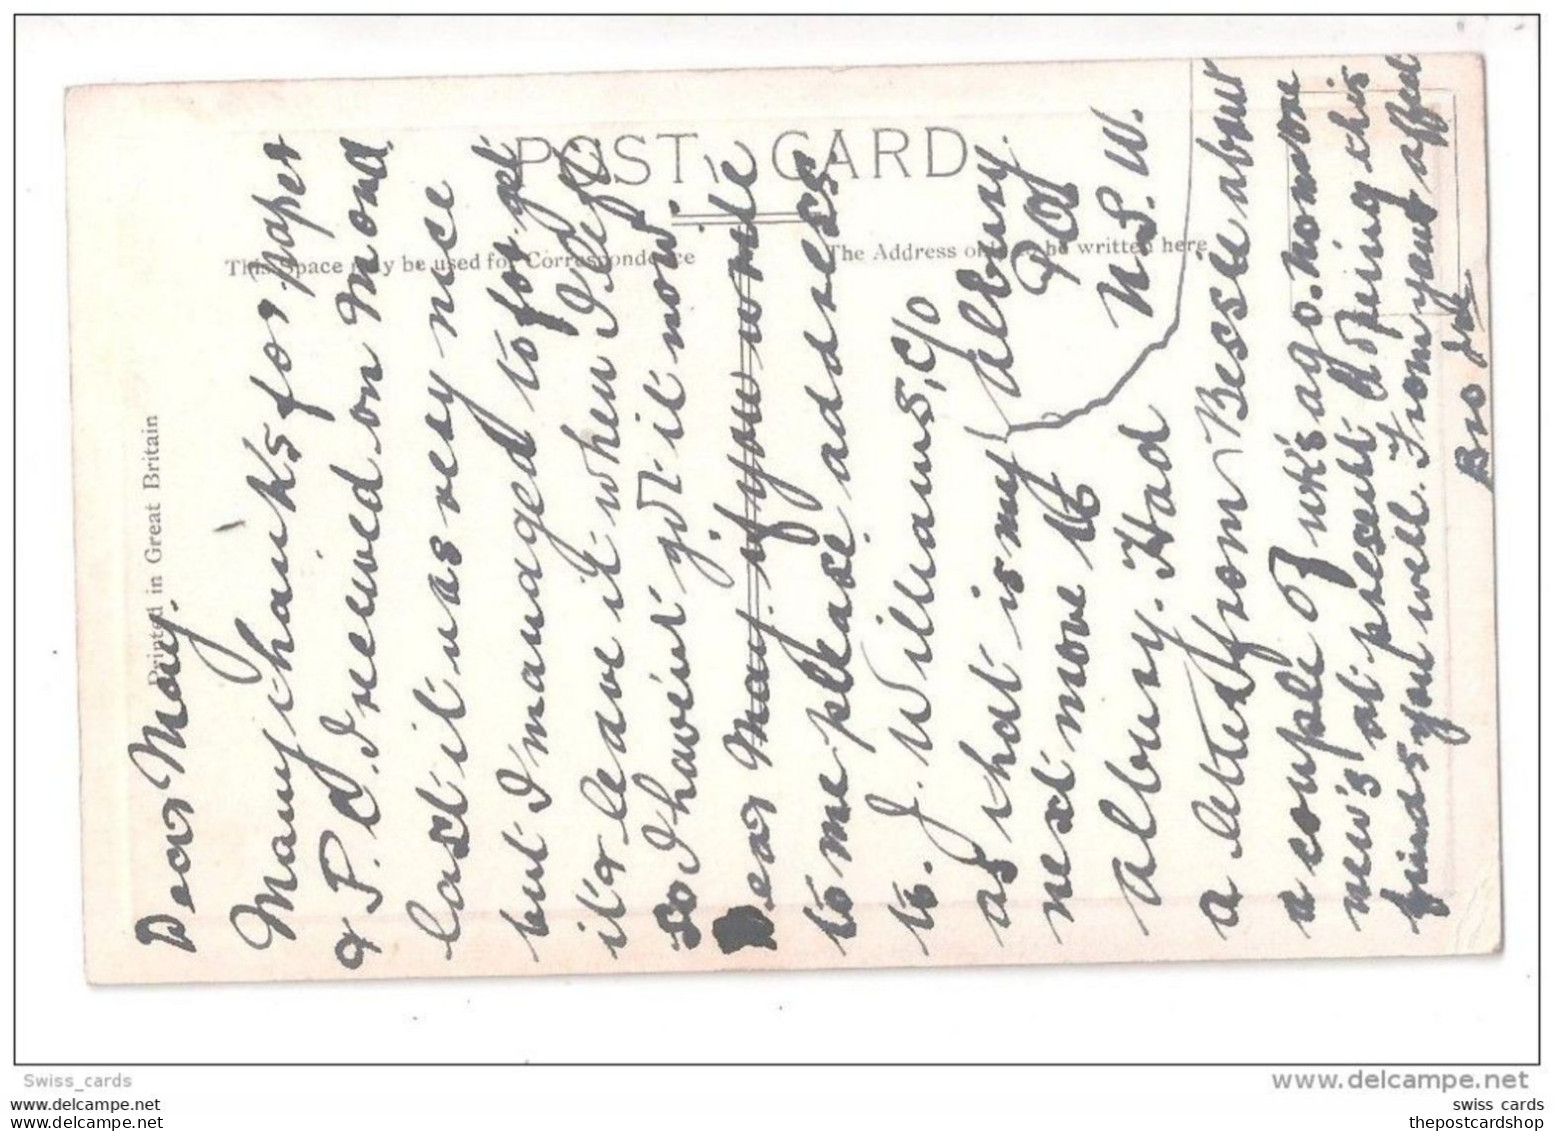 Printed in Great Britain
POST CARD
This Space may be used for Correspondence
The Address only to be written here
Dear May.
Many thanks for paper
& P.C. I received on Mond
last it was very nice
but I managed to forget
it & leave it when I left
so I havent got it now.
ear May if you write
to me please address
to. J. Williams, C/o
as that is my Albury.
next move to P.O.
Albury. Had N.S.W.
a letter from Bessie about
a couple of wks ago. no more
news at present hoping this
finds you well. From your affed
Bro Jack
Swiss_cards
www.delcampe.net
swiss cards
swiss cards
thepostcardshop
thepostcardshop